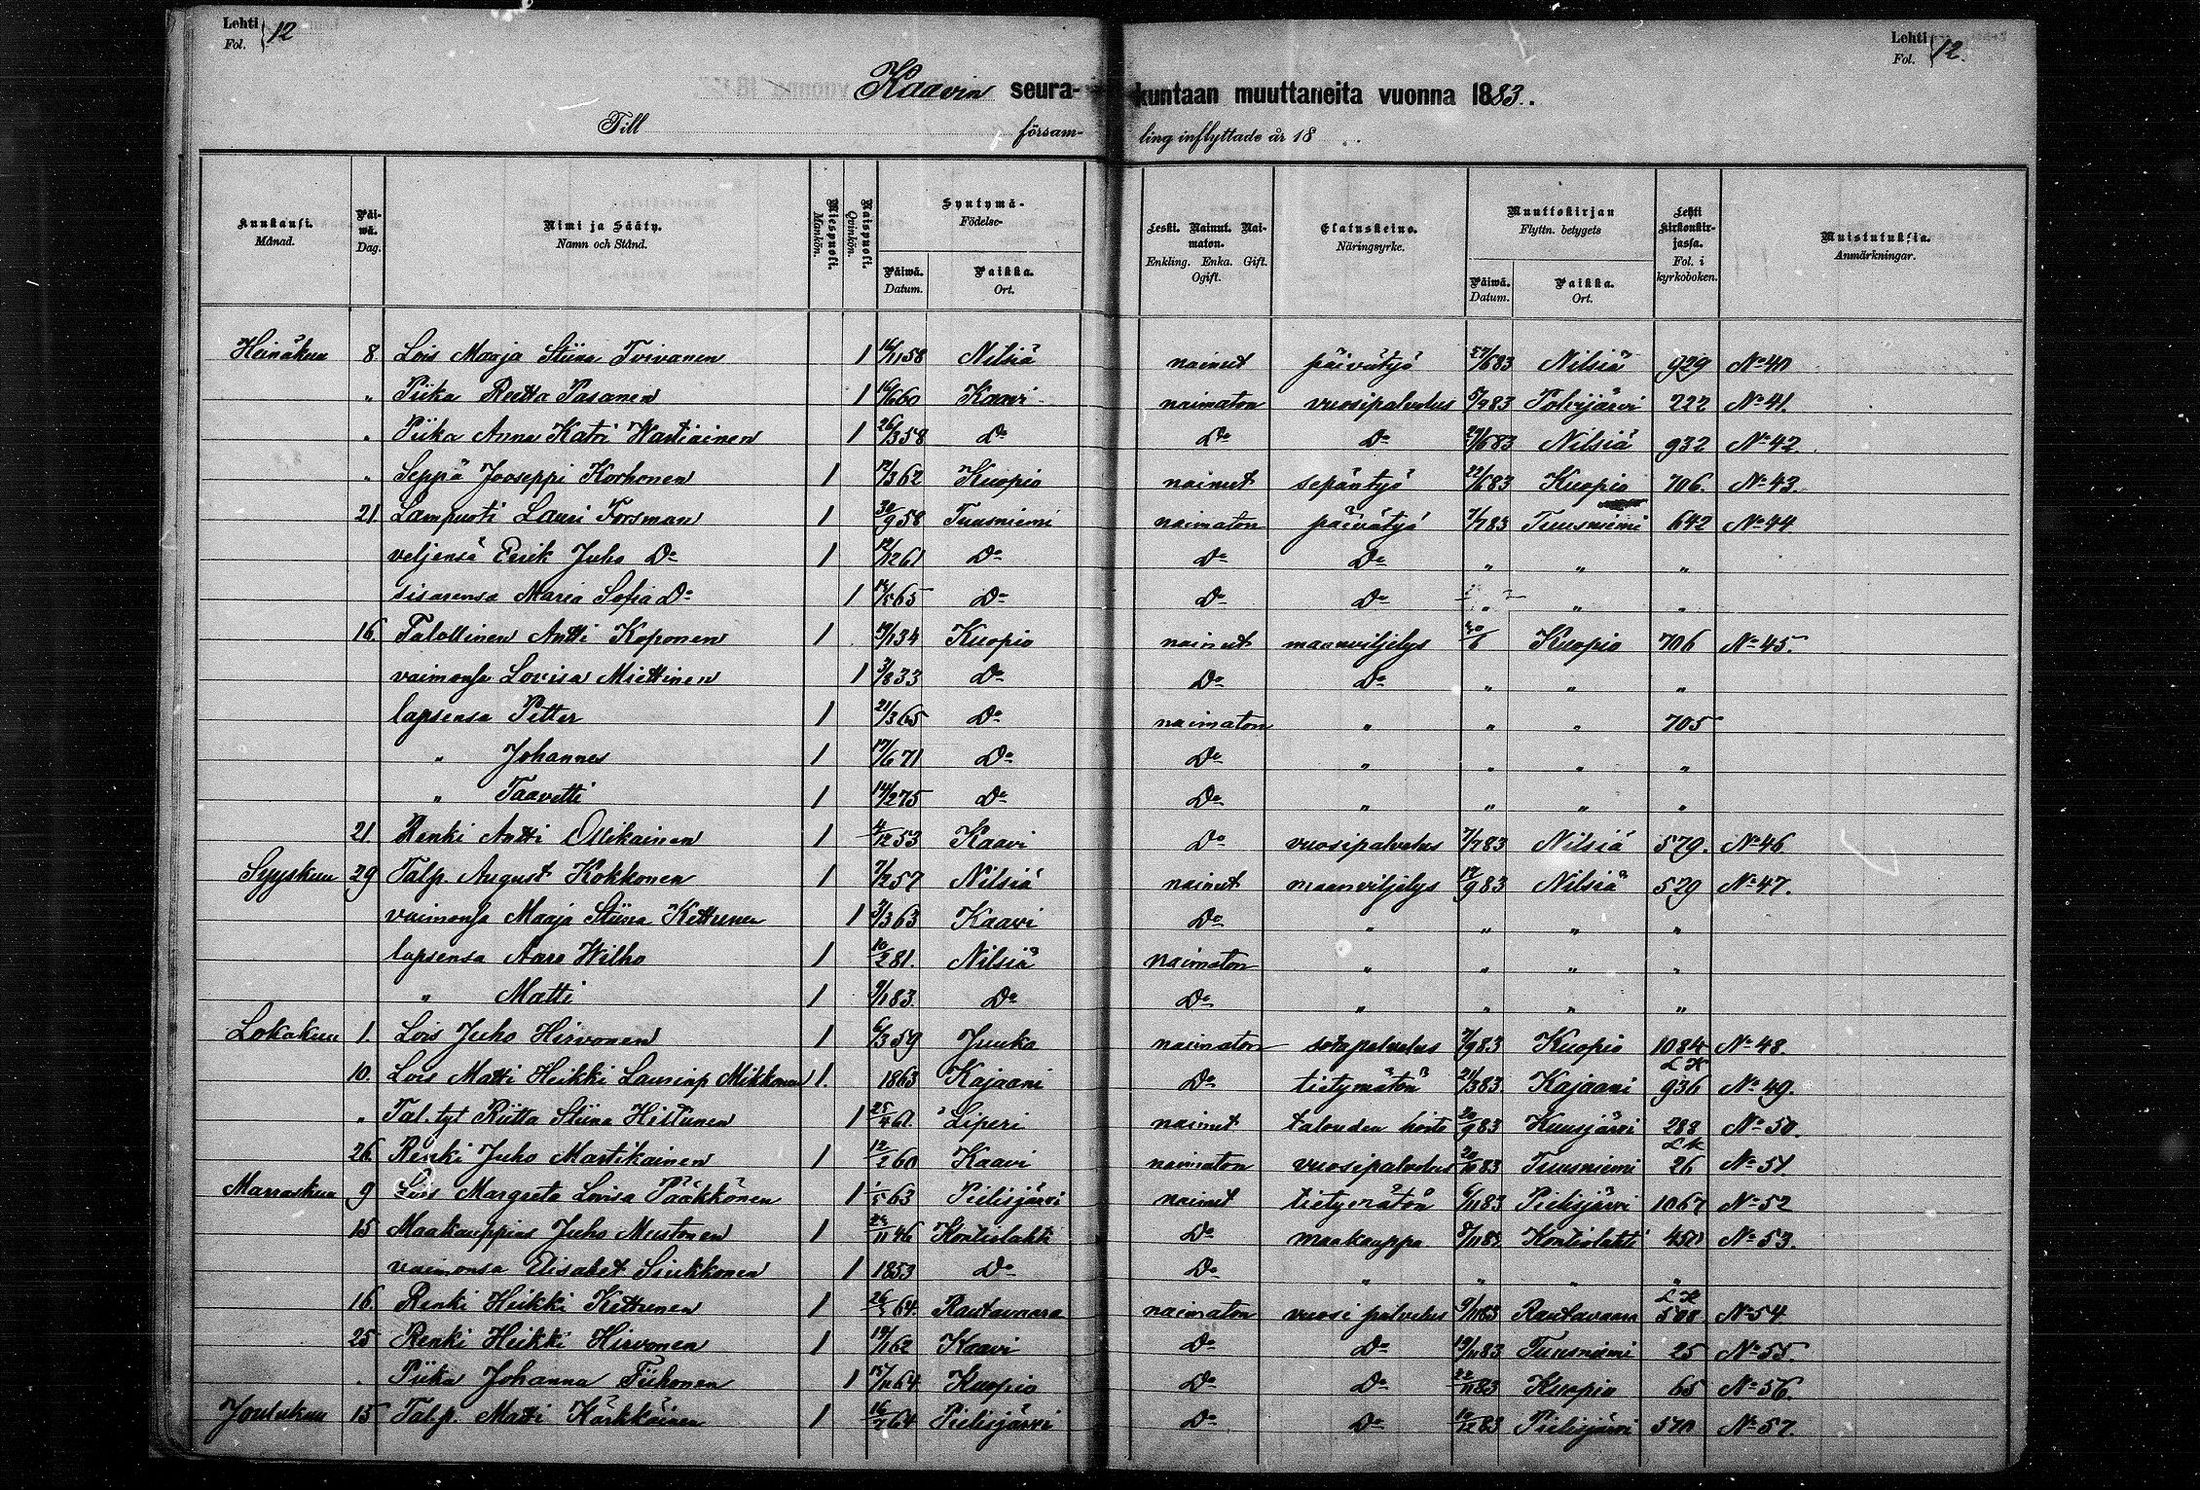 Lehti Fol. 12
Lehti Fol. 12.
Kaavin seura- kuntaan muuttaneita vuonna 1883.
Till församling inflyttade år 18
Kuukausi. Månad. Päi-wä. Dag. Nimi ja Sääty. Namn och Stånd. Miespuoli. Mankön. Naispuoli. Qvinkön. Syntymä- Födelse- Päiwä. Datum. Paikka. Ort. Leski. Nainut. Naimaton. Enkling. Enka. Gift. Ogift. Elatuskeino. Näringsyrke. Muuttokirjan Flyttn. betygets Päiwä. Datum. Paikka. Ort. Lehti kirkonkirjassa. Fol. i kyrkoboken. Muistutuksia. Anmärkningar.
Heinäkuu 8 Lois Maaja Stiina Toivanen 1 16/11 58 Nilsiä nainut päivätyö 27/6 83 Nilsiä 929 No 40
" Piika Reetta Pasanen 1 19/6 60 Kaavi naimaton vuosipalvelus 5/7 83 Polvijärvi 222 No 41.
" Piika Anna Katri Wartiainen 1 26/3 58 Do Do Do 27/6 83 Nilsiä 932 No 42.
" Seppä Jooseppi Korhonen 1 12/3 62 Kuopio nainut sepäntyö 22/6 83 Kuopio 706. No 43.
21 Lampuoti Lauri Forsman 1 30/9 58 Tuusniemi naimaton päivätyö 7/7 83 Tuusniemi 642 No 44
veljensä Eerik Juho Do 1 12/12 61 Do Do Do " " "
sisarensa Maria Sofia Do 1 14/5 65 Do Do Do " " "
16. Talollinen Antti Koponen 1 19/1 34 Kuopio nainut maanviljelys 30/6 Kuopio 706 No 45.
vaimonsa Lovisa Miettinen 1 3/8 33 Do Do Do " " "
lapsensa Petter 1 21/3 65 Do naimaton " " " 705
" Johannes 1 17/6 71 Do Do " " " "
" Taavetti 1 14/2 75 Do Do " " " "
21. Renki Antti Ollikainen 1 4/12 53 Kaavi Do vuosipalvelus 7/7 83 Nilsiä 579. No 46
Syyskuu 29 Talp. August Kokkonen 1 7/12 57 Nilsiä nainut maanviljelys 17/9 83 Nilsiä 529 No 47.
vaimonsa Maaja Stiina Kettunen 1 3/3 63 Kaavi Do " " " "
lapsensa Aaro Wilho 1 10/2 81. Nilsiä naimaton " " " "
" Matti 1 9/1 83. Do Do " " " "
Lokakuu 1. Lois Juho Hirvonen 1 6/3 59 Juuka naimaton sotapalvelus 7/9 83 Kuopio 1084 No 48.
10. Lois Matti Heikki Laurinp Mikkonen 1. 1863 Kajaani Do tietymätön 21/3 83. Kajaani LK 936 No 49.
" Tal. tyt Riitta Stiina Hiltunen 1 25/4 61. Liperi nainut talouden hoito 20/9 83 Kuusjärvi 288 No 50.
26. Renki Juho Martikainen 1 12/2 60 Kaavi naimaton vuosipalvelus 20/10 83 Tuusniemi LK 26 No 51
Marraskuu 9 Lois Margreta Lovisa Pääkkönen 1 1/5 63 Pielisjärvi nainut tietymätön 6/11 83 Pielisjärvi 1067 No 52
15 Maakauppias Juho Mustonen 1 /11 46 Kontiolahti Do maakauppa 8/11 83. Kontiolahti No 53.
vaimonsa Elisabet Sirkkonen 1 1853 Do Do " " " "
16. Renki Heikki Kettunen 1 64. Rautavaara naimaton vuosipalvelus 9/11 83 Rautavaara LK 508 No 54
25 Renki Heikki Hirvonen 1 19/1 62 Kaavi Do Do 19/11 83 Tuusniemi 25 No 55.
" Piika Johanna Tiihonen 1 15/11 64 Kuopio Do Do 22/11 83 Kuopio 65 No 56.
Joulukuu 15 Talp. Matti Kärkkäinen 1 64 Pielisjärvi Do Do 10/12 83 Pielisjärvi 570 No 57.